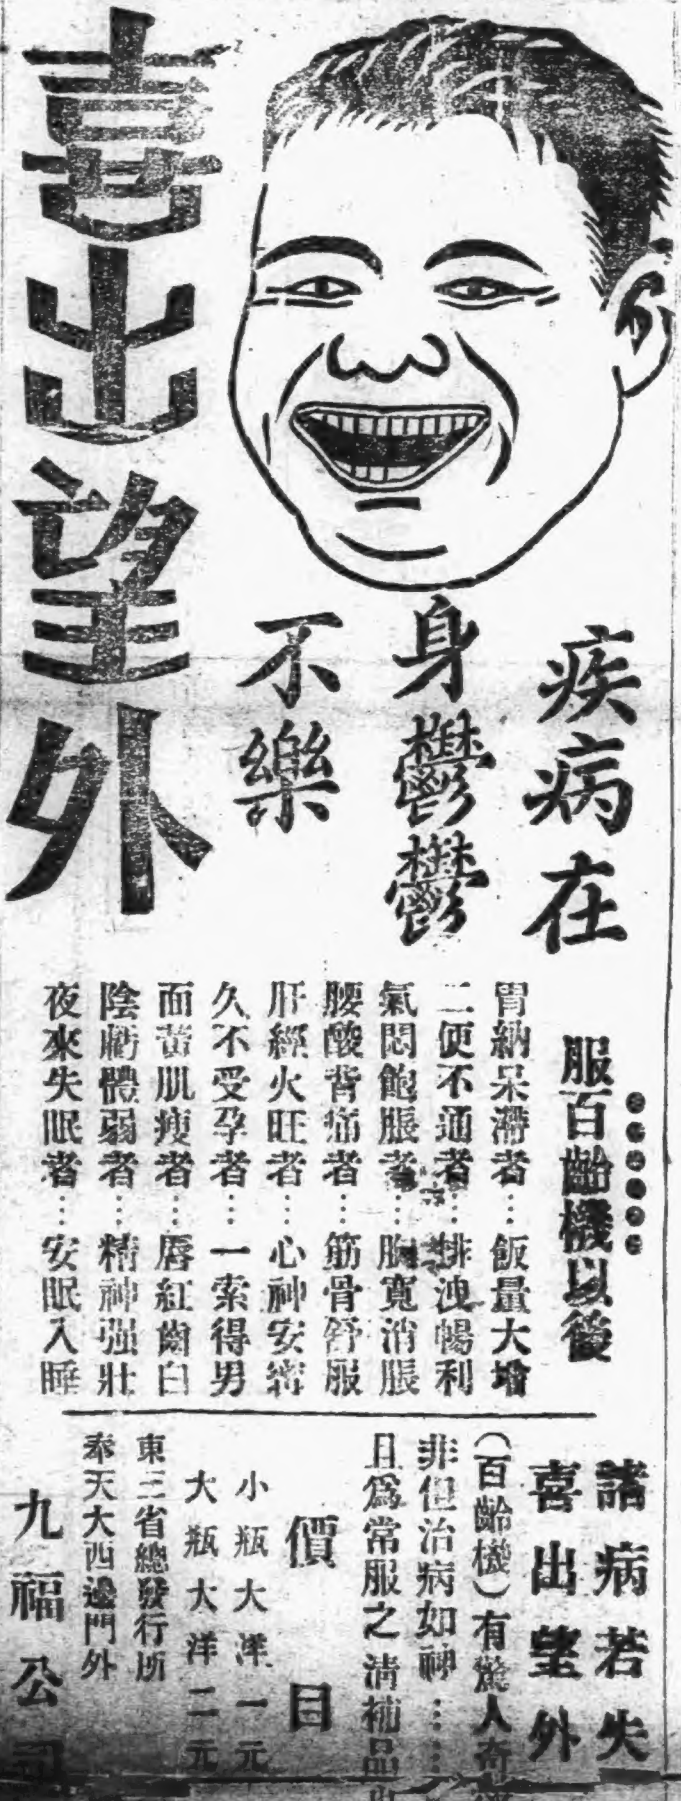 喜出望外
疾病在
身鬱鬱
不樂
服百齡機以後
胃納呆滯者…飯量大增
二便不通者…排洩暢利
氣悶飽脹者…胸寬消脹
腰酸背痛者…筋骨舒服
肝經火旺者…心神安寧
久不受孕者…一索得男
面黃肌瘦者…唇紅齒白
陰虧體弱者…精神强壯
夜來失眠者…安眠入睡
諸病若失
喜出望外
(百齡機)有驚人奇
非但治病如神……
且爲常服之清補品
價目
小瓶大洋一元
大瓶大洋二元
東三省總發行所
奉天大西邊門外
九福公司